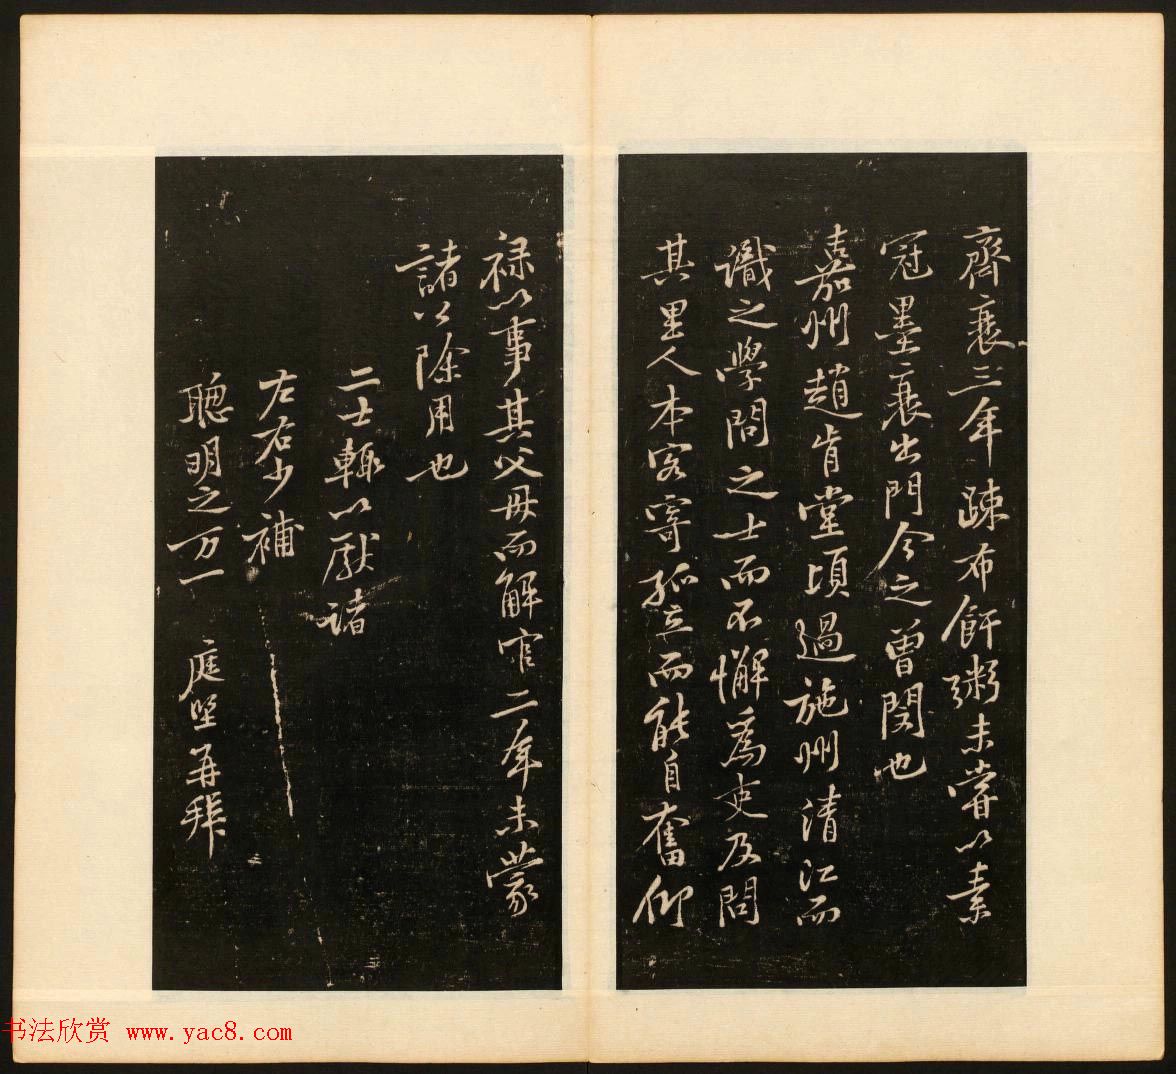 齊衰三年疎布飦粥未嘗以素
冠墨衰出門今之曾閔也
嘉州趙肯堂頃過施州清江而
識之學問之士而不懈為吏及問
其里人本客寄孤立而能自奮仰
祿以事其父母而解官二年未蒙
諸公除用也
二士輒以獻諸
左右少補
聰明之万一 庭堅再拜
书法欣赏 www.yac8.com